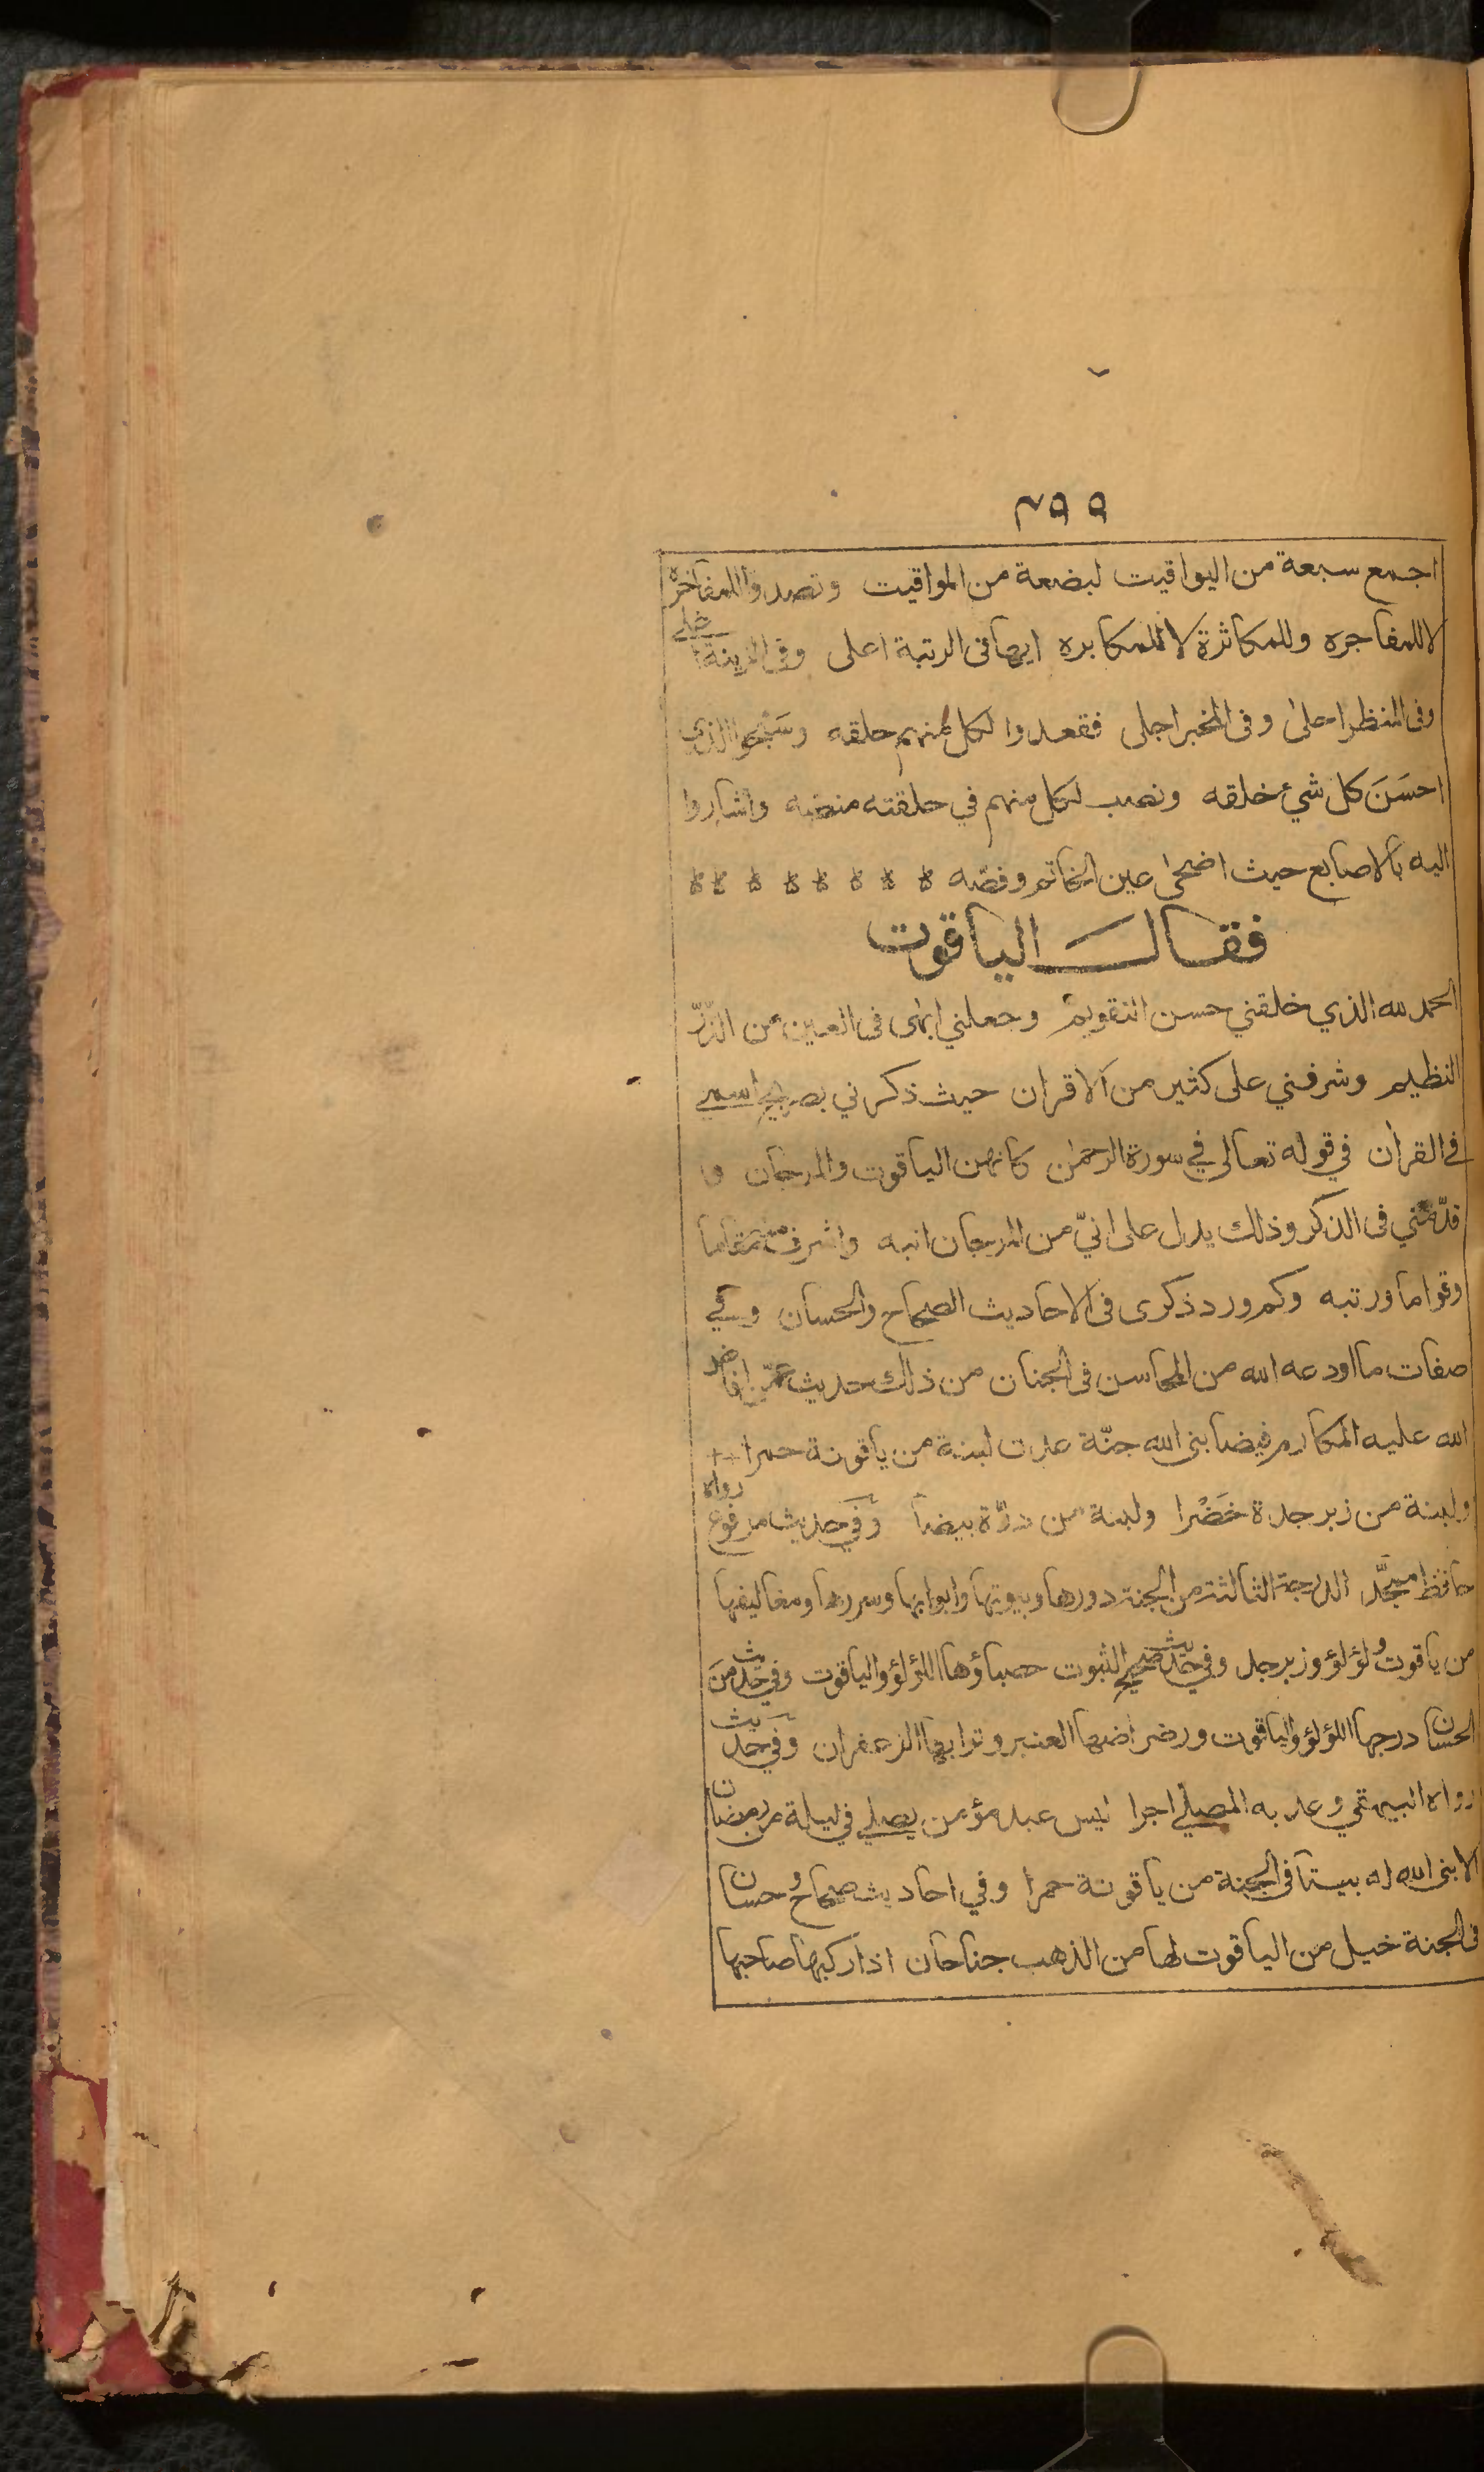 ٢٩٩
اجمع سبعة من اليواقيت لبضعة من المواقيت وتصدوا للمفاخرة
لاللمفاجره وللمكاثرة لا للمكابره ايها فى الرتبة اعلى وفى الزينة احلى
وفى المنظر احلى وفى المخبر اجلى فقعدوا لكل منهم حلقه وسَبّحوا الذي
احسَنَ كل شيء خلقه ونصب لكل منهم في حلقته منصّه واشاروا
اليه بالاصابع حيث اضحى عين الخاتم وفصّه
فقال الياقوت
الحمد لله الذي خلقني حسن التقويم وجعلني ابهى فى العين من الدّرّ
النظيم وشرفني على كثير من الاقران حيث ذكرني بصريح اسمي
في القران في قوله تعالى في سورة الرحمن كانهن الياقوت والمرجان و
قدّمني فى الذكر وذلك يدل على انيّ من المرجان انبه واشرف منه مقاما
وقواما ورتبه وكم ورد ذكرى فى الاحاديث الصحاح والحسان وفي
صفات ما اودعه الله من المحاسن فى الجنان من ذلك حديث عمّن افاض
الله عليه المكارم فيضا بنى الله جنّة عدن لبنة من ياقوتة حمرا
ولبنة من زبرجدة خَضْرا ولبنة من درّة بيضا وفي حديث مرفوع رواه
حافظ مجدّ الدرجة الثالثة من الجنة دورها وبيوتها وابوابها وسررها ومغاليقها
من ياقوت ولؤلؤ وزبرجد وفي حديث صحيح الثبوت حصباؤها اللؤلؤ والياقوت وفي حديث منَ
الحسان درجها اللؤلؤ والياقوت ورضراضها العنبر وترابها الزعفران وفي حديث
رواه البيهقي وعد به المصلي اجرا ليس عبد مؤمن يصلي في ليلة من رمضان
الا بنى الله له بيتا فى الجنة من ياقوتة حمرا وفي احاديث صحاح وحسان
فى الجنة خيل من الياقوت لها من الذهب جناحان اذا ركبها صاحبها